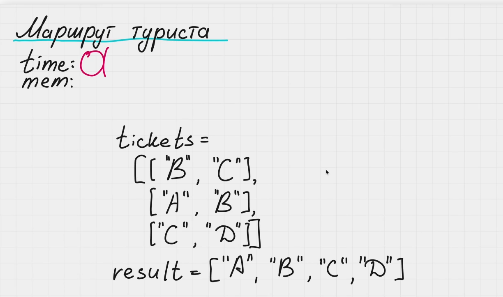 Маршрут туриста
time: O
mem:
tickets =
[["B", "C"],
["A", "B"],
["C", "D"]]
result = ["A", "B", "C", "D"]